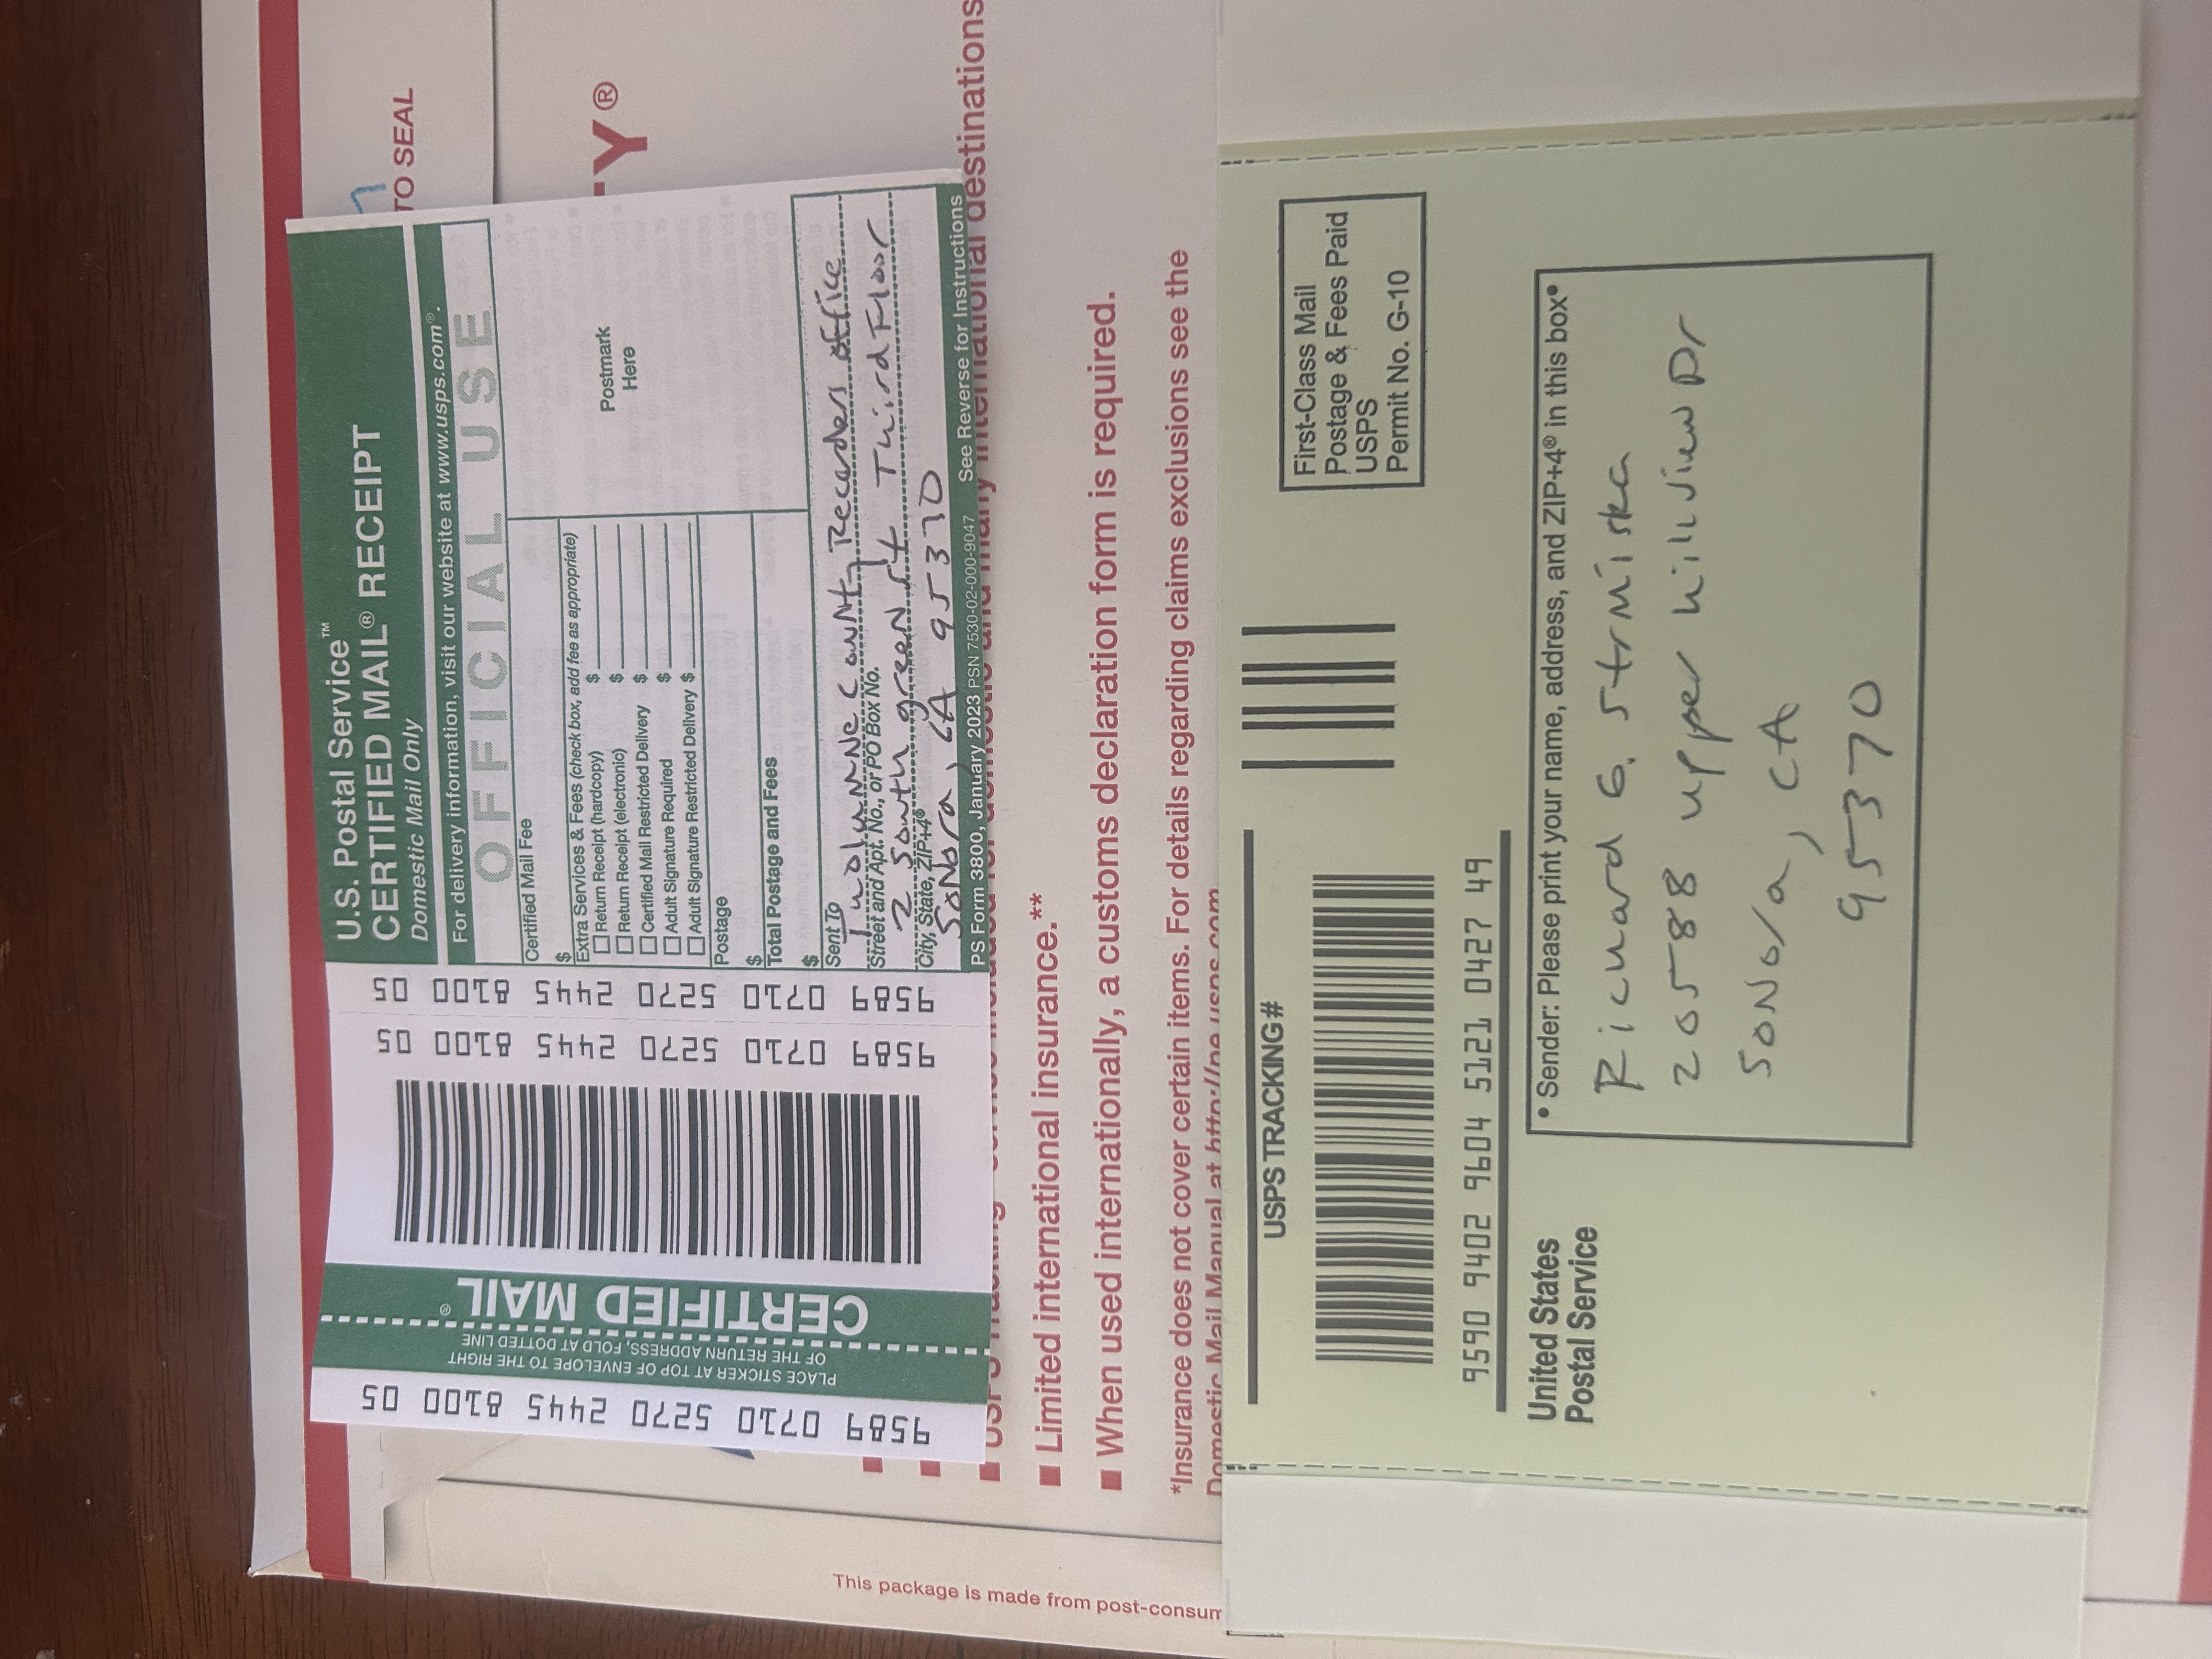 9589 0710 5270 2445 8100 05
PLACE STICKER AT TOP OF ENVELOPE TO THE RIGHT
OF THE RETURN ADDRESS, FOLD AT DOTTED LINE
CERTIFIED MAIL®
9589 0710 5270 2445 8100 05
9589 0710 5270 2445 8100 05
U.S. Postal Service™
CERTIFIED MAIL® RECEIPT
Domestic Mail Only
For delivery information, visit our website at www.usps.com®.
OFFICIAL USE
Certified Mail Fee
$
Extra Services & Fees (check box, add fee as appropriate)
Return Receipt (hardcopy) $
Return Receipt (electronic) $
Certified Mail Restricted Delivery $
Adult Signature Required $
Adult Signature Restricted Delivery $
Postage
$
Total Postage and Fees
$
Postmark
Here
Sent To
Tuolumne County Recorders office
Street and Apt. No., or PO Box No.
2 South green st Third Floor
City, State, ZIP+4®
Sonora, CA 95370
PS Form 3800, January 2023 PSN 7530-02-000-9047 See Reverse for Instructions
TO SEAL
TY®
This package is made from post-consum
USPS Tracking service included for domestic and many international destinations
Limited international insurance.**
When used internationally, a customs declaration form is required.
*Insurance does not cover certain items. For details regarding claims exclusions see the
Domestic Mail Manual at http://pe.usps.com
USPS TRACKING #
9590 9402 9604 5121 0427 49
First-Class Mail
Postage & Fees Paid
USPS
Permit No. G-10
United States
Postal Service
• Sender: Please print your name, address, and ZIP+4® in this box•
Richard G. Strmiska
20588 upper hillview Dr
Sonora, CA
95370